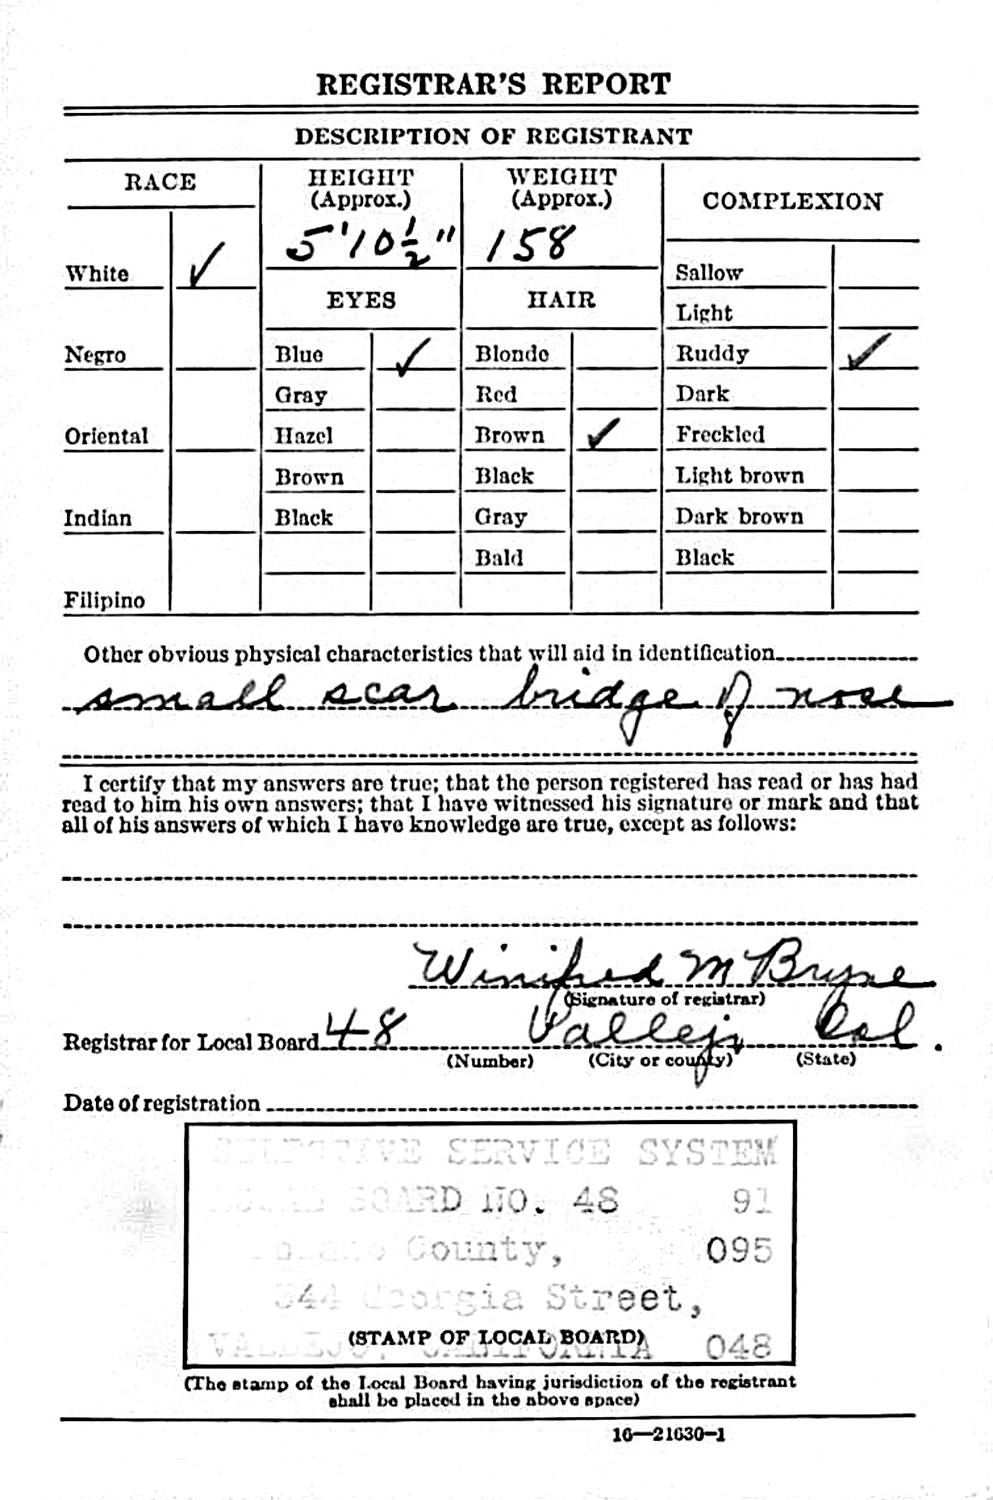 REGISTRAR'S REPORT
DESCRIPTION OF REGISTRANT
RACE
HEIGHT
(Approx.)
WEIGHT
(Approx.)
COMPLEXION
5' 10 1/2"
158
White ✓
Sallow
EYES
HAIR
Light
Negro
Blue ✓
Blonde
Ruddy ✓
Gray
Red
Dark
Oriental
Hazel
Brown ✓
Freckled
Brown
Black
Light brown
Indian
Black
Gray
Dark brown
Bald
Black
Filipino
Other obvious physical characteristics that will aid in identification
small scar bridge of nose
I certify that my answers are true; that the person registered has read or has had
read to him his own answers; that I have witnessed his signature or mark and that
all of his answers of which I have knowledge are true, except as follows:
Winifred M Bryne
(Signature of registrar)
Registrar for Local Board 48 Vallejo Cal.
(Number) (City or county) (State)
Date of registration
SELECTIVE SERVICE SYSTEM
LOCAL BOARD NO. 48 91
Solano County, 095
344 Georgia Street,
VALLEJO, CALIFORNIA 048
(STAMP OF LOCAL BOARD)
(The stamp of the Local Board having jurisdiction of the registrant
shall be placed in the above space)
16—21630-1